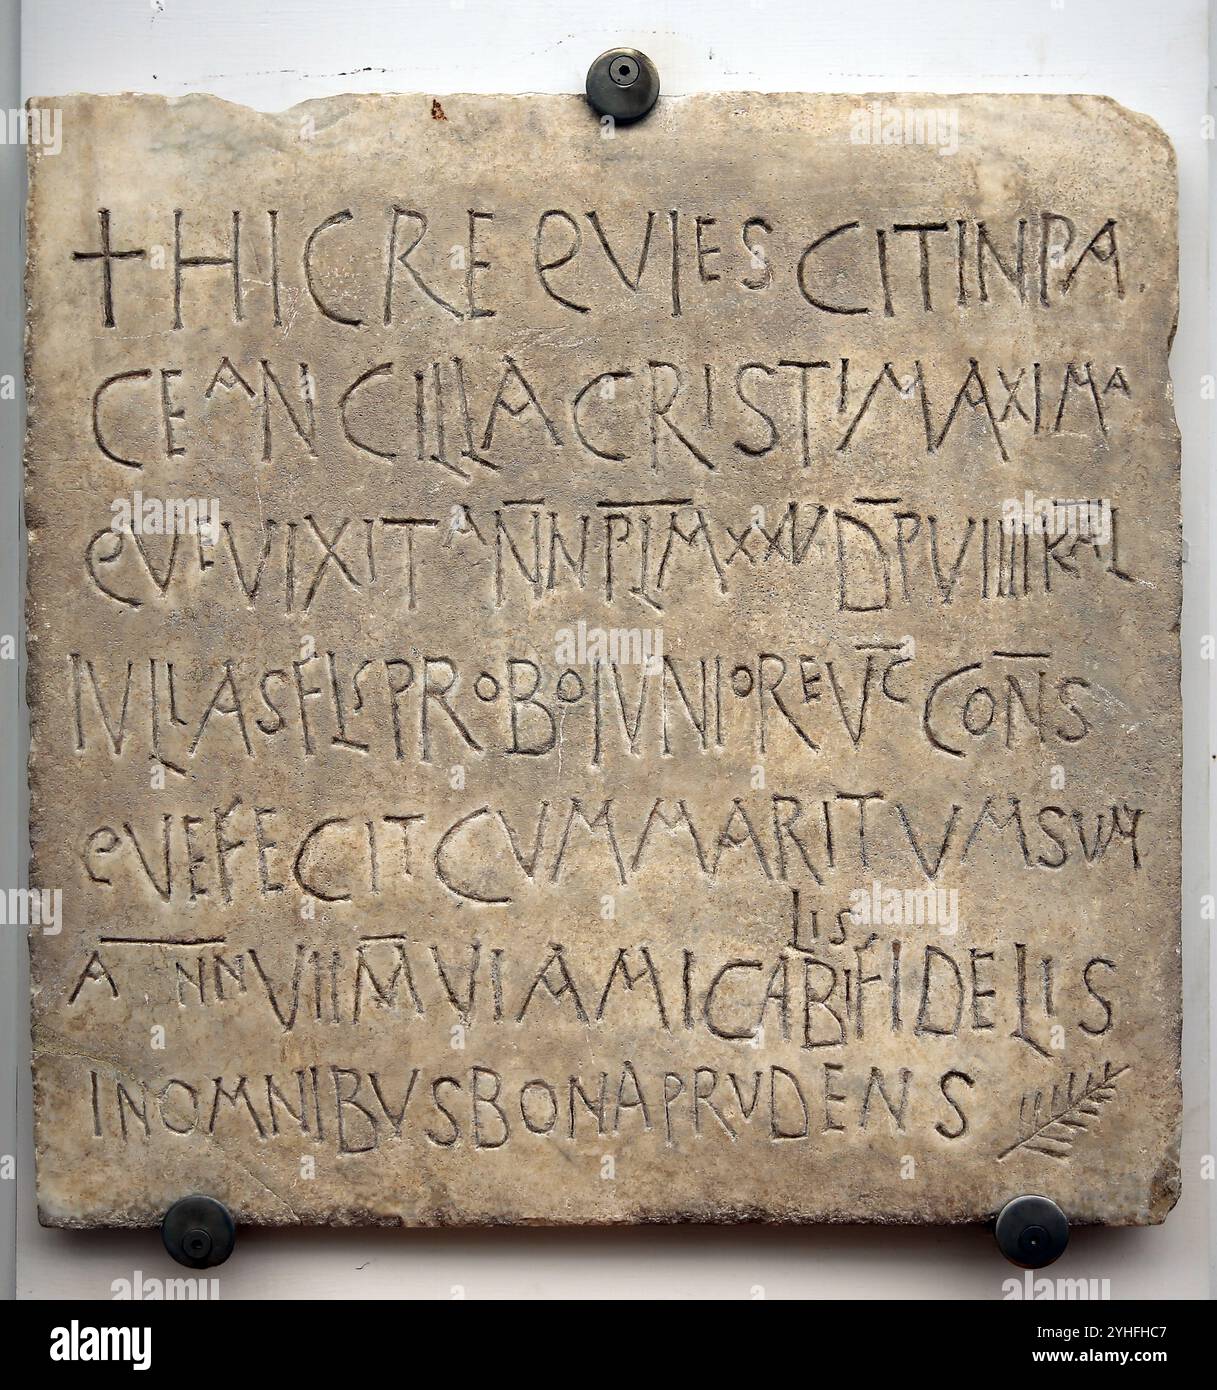 + HIC REQVIESCIT IN PA
CE ANCILLA CRISTI MAXIMA
QVE VIXIT ANN PL M XXV DP VIIII KAL
IVLIAS FL S PROBO IVNIORE VC CONS
QVE FECIT CVM MARITVM SVM
ANN VII M VI AMICABILIS FIDELIS
IN OMNIBVS BONA PRVDENS
alamy
Image ID: 2YHFHC7
www.alamy.com